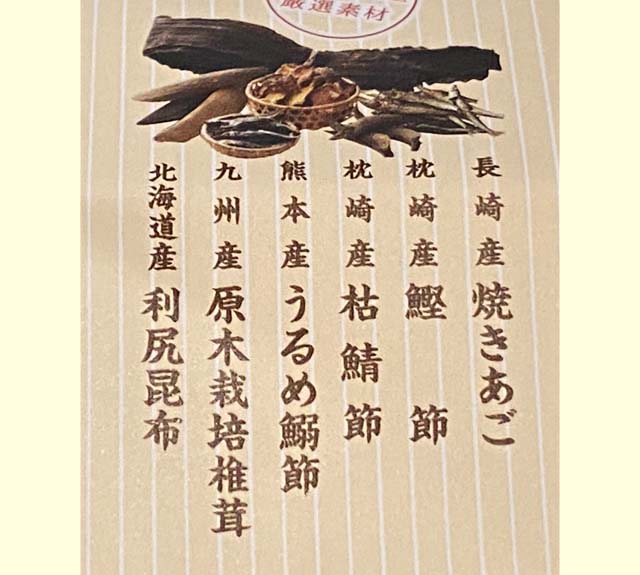 厳選素材
長崎産焼きあご
枕崎産鰹節
枕崎産枯鯖節
熊本産うるめ鰯節
九州産原木栽培椎茸
北海道産利尻昆布